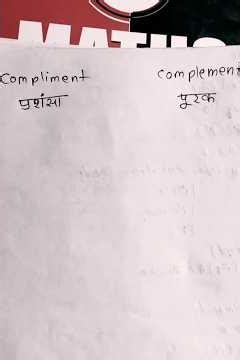 MATHS
Compliment complement
प्रशंसा पूरक